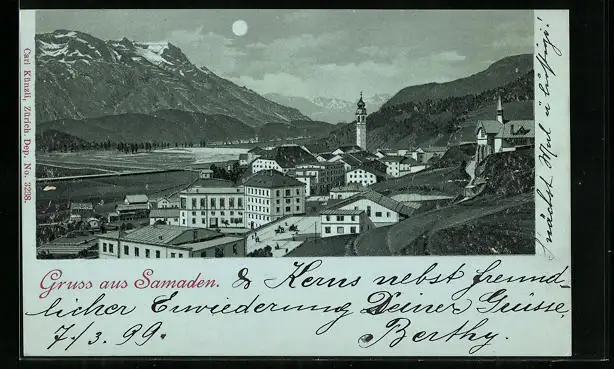 Carl Künzli, Zürich Dep. No. 3228.
Gruss aus Samaden. & Kerns nebst freund-
licher Erwiederung Deiner Grüsse,
7/3. 99. Berthy.
nächst Mal